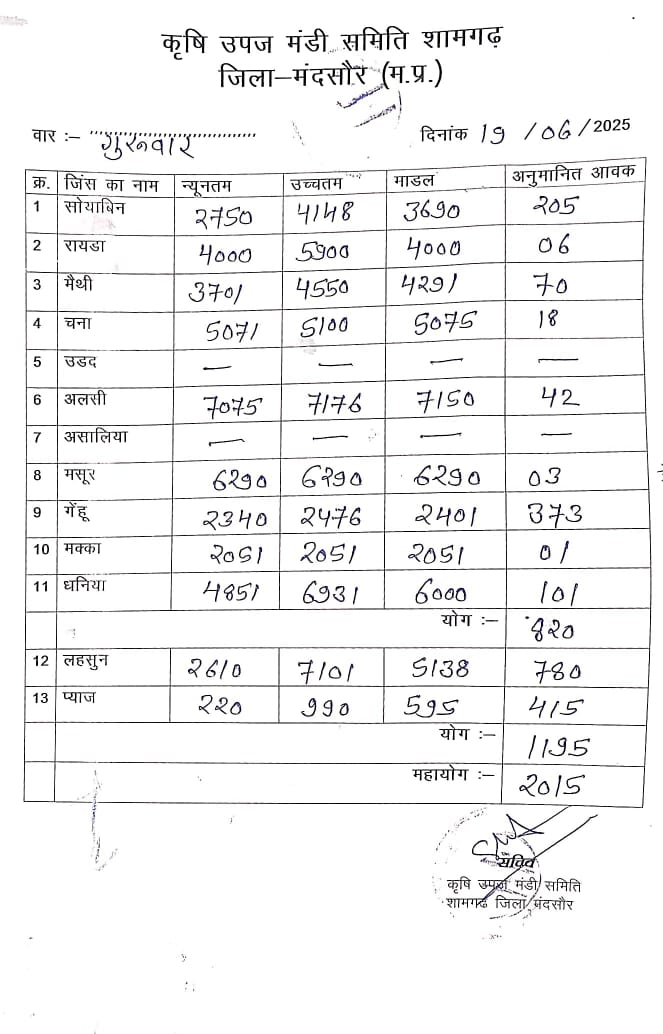 कृषि उपज मंडी समिति शामगढ़
जिला–मंदसौर (म.प्र.)
वार :– गुरूवार दिनांक 19/06/2025
क्र. जिंस का नाम न्यूनतम उच्चतम माडल अनुमानित आवक
1 सोयाबिन 2750 4148 3690 205
2 रायडा 4000 5900 4000 06
3 मैथी 3701 4550 4291 70
4 चना 5071 5100 5075 18
5 उडद — — — —
6 अलसी 7075 7176 7150 42
7 असालिया — — — —
8 मसूर 6290 6290 6290 03
9 गेंहू 2340 2476 2401 373
10 मक्का 2051 2051 2051 01
11 धनिया 4851 6931 6000 101
योग :– 820
12 लहसुन 2610 7101 5138 780
13 प्याज 220 990 595 415
योग :– 1195
महायोग :– 2015
सचिव
कृषि उपज मंडी समिति
शामगढ जिला मंदसौर